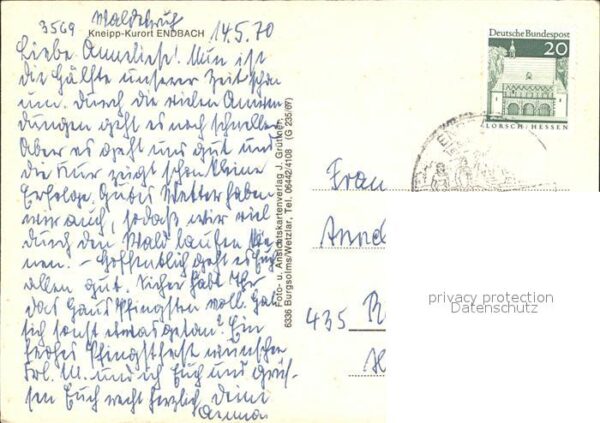 3569 Waldbruch
14.5.70
Kneipp-Kurort ENDBACH
Liebe Annliese! Nun ist
die Hälfte unserer Zeit schon
um. Durch die vielen Anwen-
dungen geht es noch schneller
Aber es geht uns gut und
die Kur zeigt schon kleine
Erfolge. Gutes Wetter haben
wir auch, sodaß wir viel
durch den Wald laufen kön-
nen. - Hoffentlich geht es Euch
allen gut. Sicher habt Ihr
das Haus Pfingsten voll. Hat
sich sonst etwas getan? Ein
frohes Pfingstfest wünschen
Frl. M. und ich Euch und grüs-
sen Euch recht herzlich, Deine
Foto- u. Ansichtskartenverlag J. Grüttner,
6336 Burgsolms/Wetzlar, Tel. 06442/4108 (G 235/67)
Deutsche Bundespost
20
LORSCH · HESSEN
Frau
435
privacy protection
Datenschutz